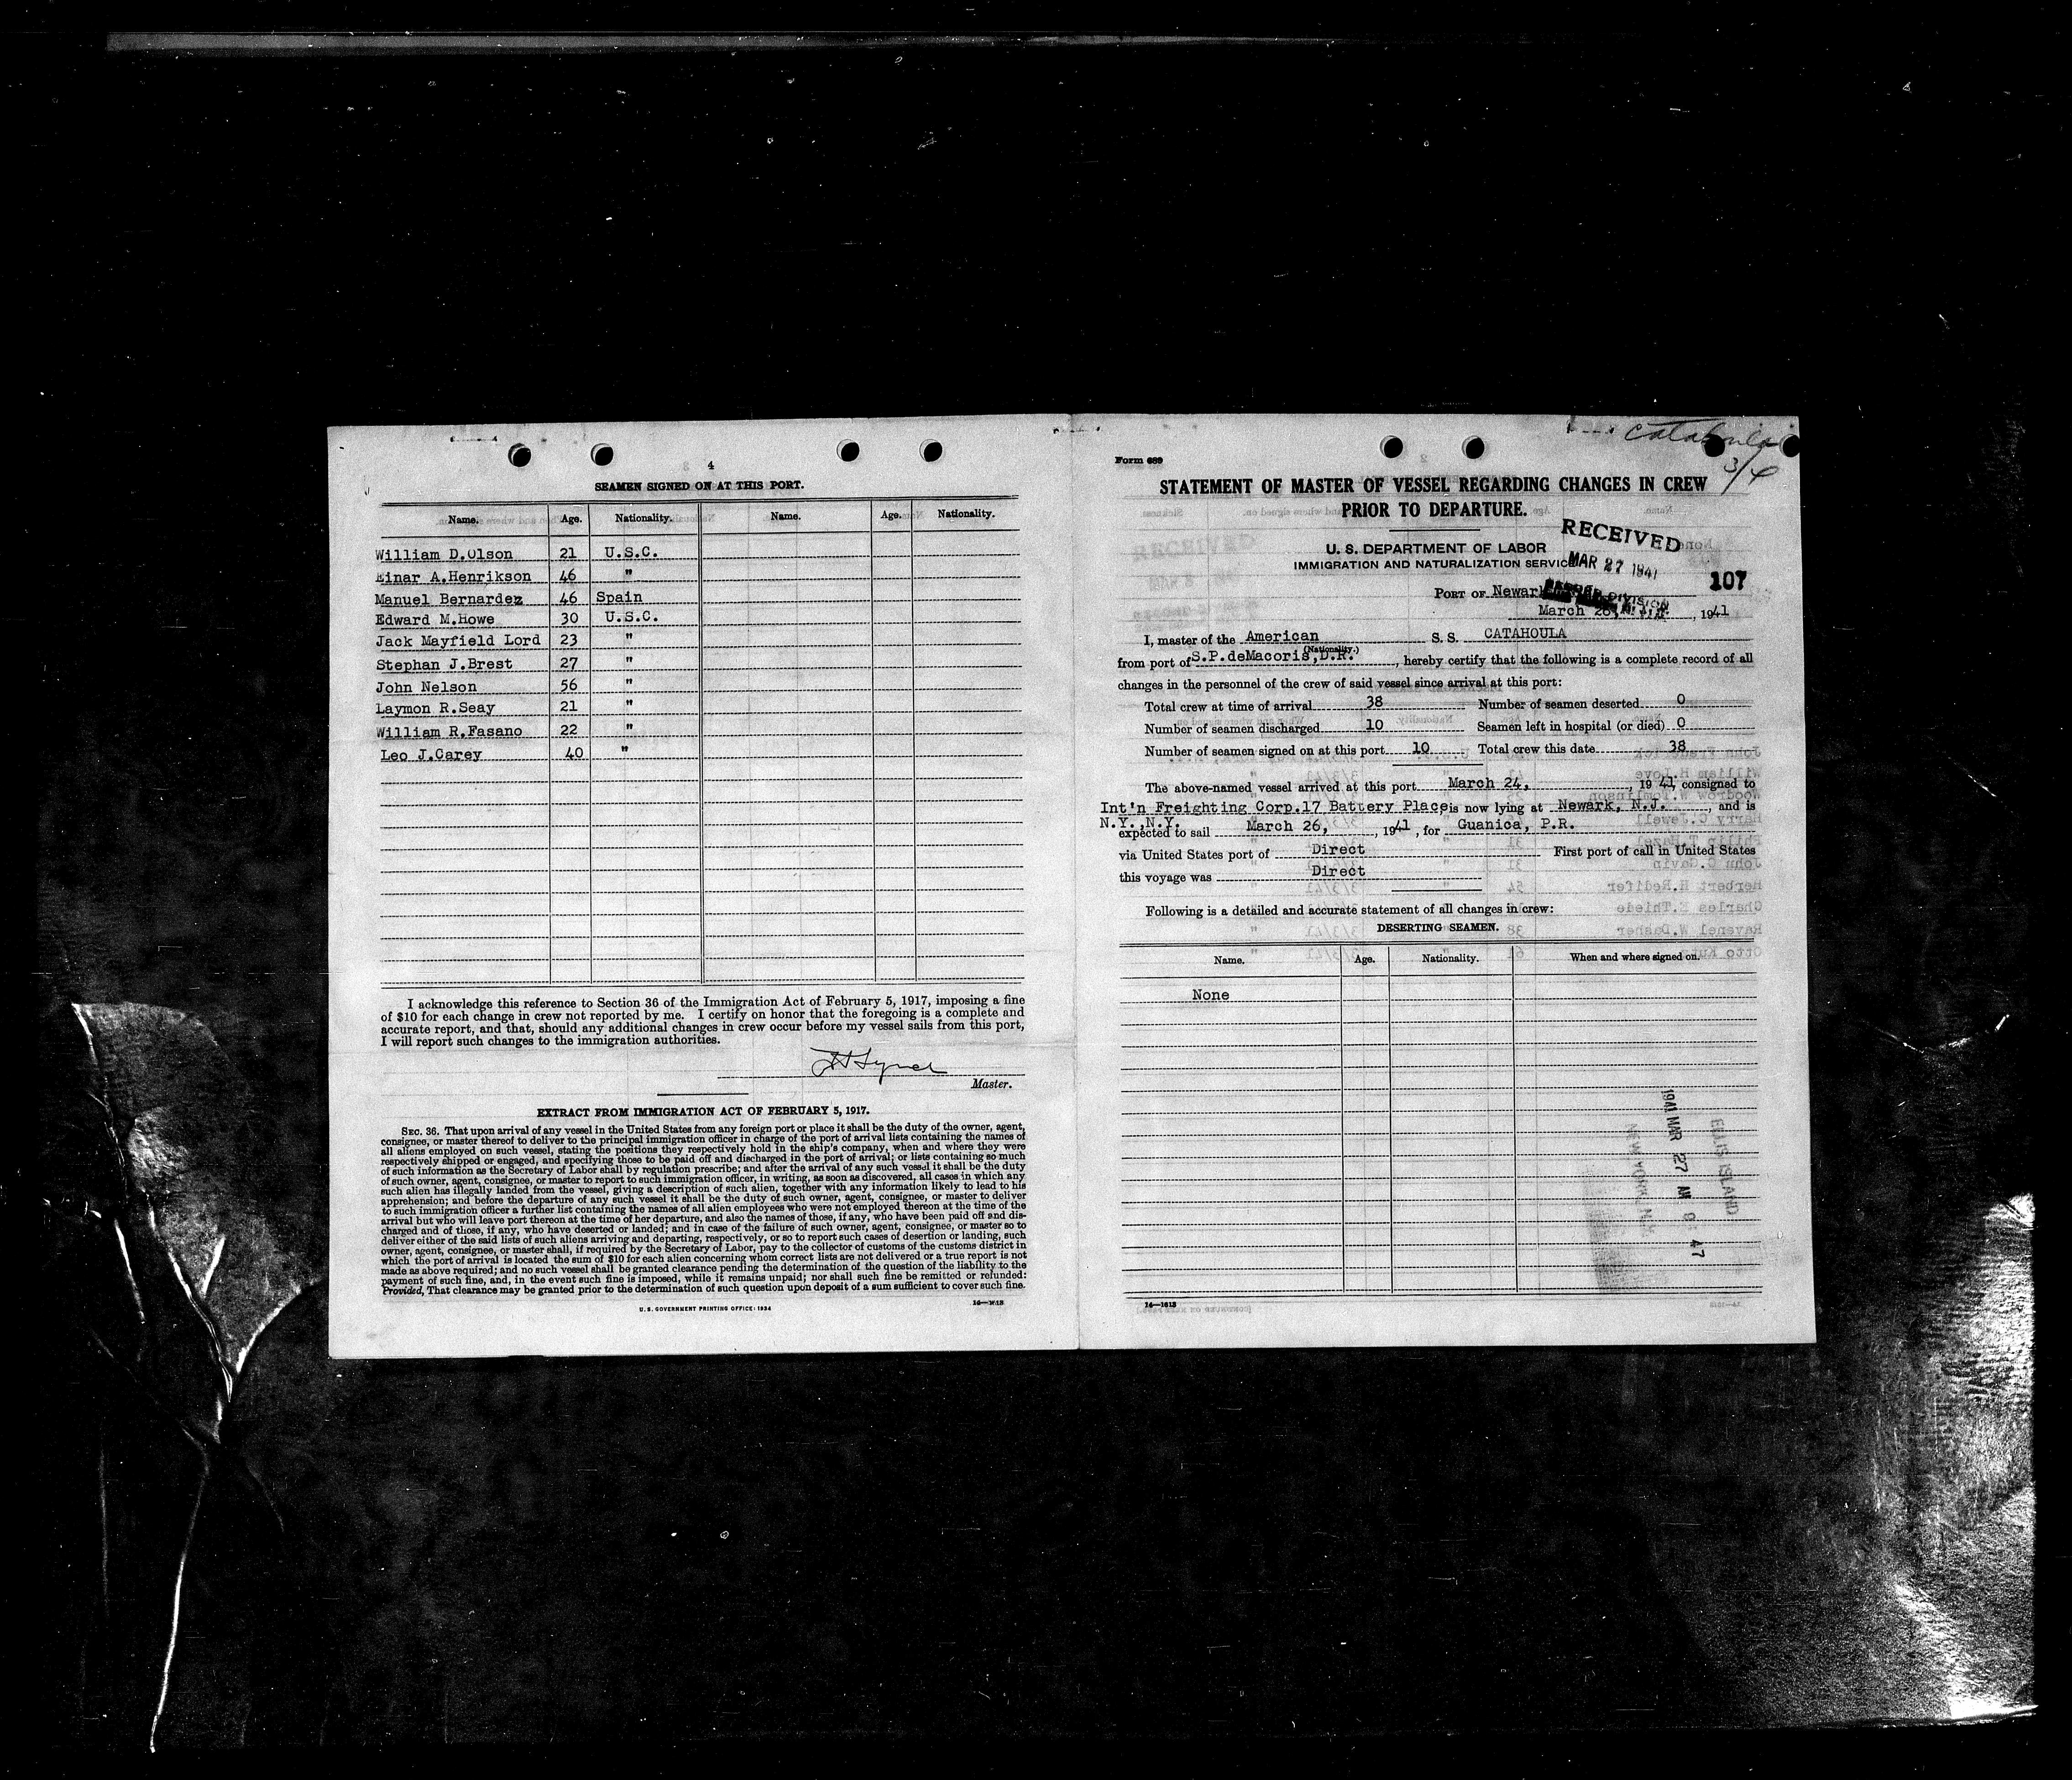 4
SEAMEN SIGNED ON AT THIS PORT.
Name. Age. Nationality. Name. Age. Nationality.
William D.Olson 21 U.S.C.
Einar A.Henrikson 46 "
Manuel Bernardez 46 Spain
Edward M.Howe 30 U.S.C.
Jack Mayfield Lord 23 "
Stephan J.Brest 27 "
John Nelson 56 "
Laymon R.Seay 21 "
William R.Fasano 22 "
Leo J.Carey 40 "
I acknowledge this reference to Section 36 of the Immigration Act of February 5, 1917, imposing a fine
of $10 for each change in crew not reported by me. I certify on honor that the foregoing is a complete and
accurate report, and that, should any additional changes in crew occur before my vessel sails from this port,
I will report such changes to the immigration authorities.
Master.
EXTRACT FROM IMMIGRATION ACT OF FEBRUARY 5, 1917.
SEC. 36. That upon arrival of any vessel in the United States from any foreign port or place it shall be the duty of the owner, agent,
consignee, or master thereof to deliver to the principal immigration officer in charge of the port of arrival lists containing the names of
all aliens employed on such vessel, stating the positions they respectively hold in the ship's company, when and where they were
respectively shipped or engaged, and specifying those to be paid off and discharged in the port of arrival; or lists containing so much
of such information as the Secretary of Labor shall by regulation prescribe; and after the arrival of any such vessel it shall be the duty
of such owner, agent, consignee, or master to report to such immigration officer, in writing, as soon as discovered, all cases in which any
such alien has illegally landed from the vessel, giving a description of such alien, together with any information likely to lead to his
apprehension; and before the departure of any such vessel it shall be the duty of such owner, agent, consignee, or master to deliver
to such immigration officer a further list containing the names of all alien employees who were not employed thereon at the time of the
arrival but who will leave port thereon at the time of her departure, and also the names of those, if any, who have been paid off and dis-
charged and of those, if any, who have deserted or landed; and in case of the failure of such owner, agent, consignee, or master so to
deliver either of the said lists of such aliens arriving and departing, respectively, or so to report such cases of desertion or landing, such
owner, agent, consignee, or master shall, if required by the Secretary of Labor, pay to the collector of customs of the customs district in
which the port of arrival is located the sum of $10 for each alien concerning whom correct lists are not delivered or a true report is not
made as above required; and no such vessel shall be granted clearance pending the determination of the question of the liability to the
payment of such fine, and, in the event such fine is imposed, while it remains unpaid; nor shall such fine be remitted or refunded:
Provided, That clearance may be granted prior to the determination of such question upon deposit of a sum sufficient to cover such fine.
U. S. GOVERNMENT PRINTING OFFICE: 1934
Catahoula
3/4
Form 689
STATEMENT OF MASTER OF VESSEL REGARDING CHANGES IN CREW
PRIOR TO DEPARTURE.
RECEIVED
U. S. DEPARTMENT OF LABOR
IMMIGRATION AND NATURALIZATION SERVICE
MAR 27 1941
107
PORT OF Newark
DIVISION
March 26, 1941
I, master of the American S. S. CATAHOULA
(Nationality.)
from port of S.P.deMacoris,D.R. , hereby certify that the following is a complete record of all
changes in the personnel of the crew of said vessel since arrival at this port:
Total crew at time of arrival 38 Number of seamen deserted 0
Number of seamen discharged 10 Seamen left in hospital (or died) 0
Number of seamen signed on at this port 10 Total crew this date 38
The above-named vessel arrived at this port March 24, , 1941, consigned to
Int'n Freighting Corp.17 Battery Place is now lying at Newark, N.J. , and is
N.Y.,N.Y.
expected to sail March 26, , 1941 , for Guanica, P.R.
via United States port of Direct First port of call in United States
this voyage was Direct
Following is a detailed and accurate statement of all changes in crew:
DESERTING SEAMEN.
Name. Age. Nationality. When and where signed on.
None
1941 MAR 27 AM 9:47
ELLIS ISLAND
NEW YORK, N.Y.
14—1613